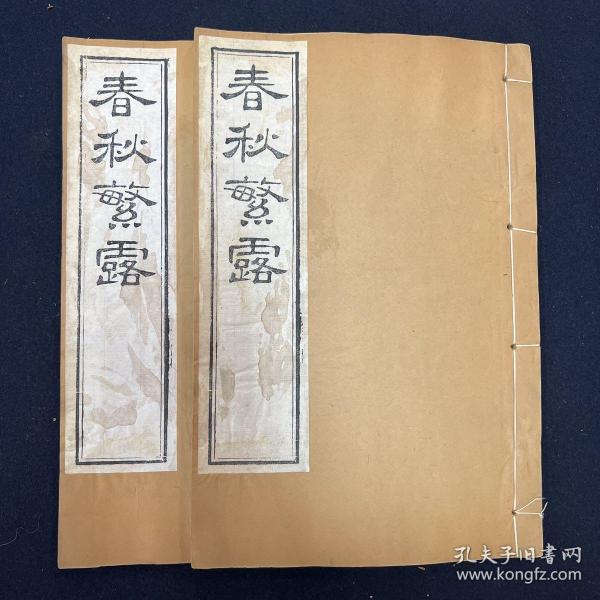 春秋繁露
春秋繁露
孔夫子旧书网
www.kongfz.com